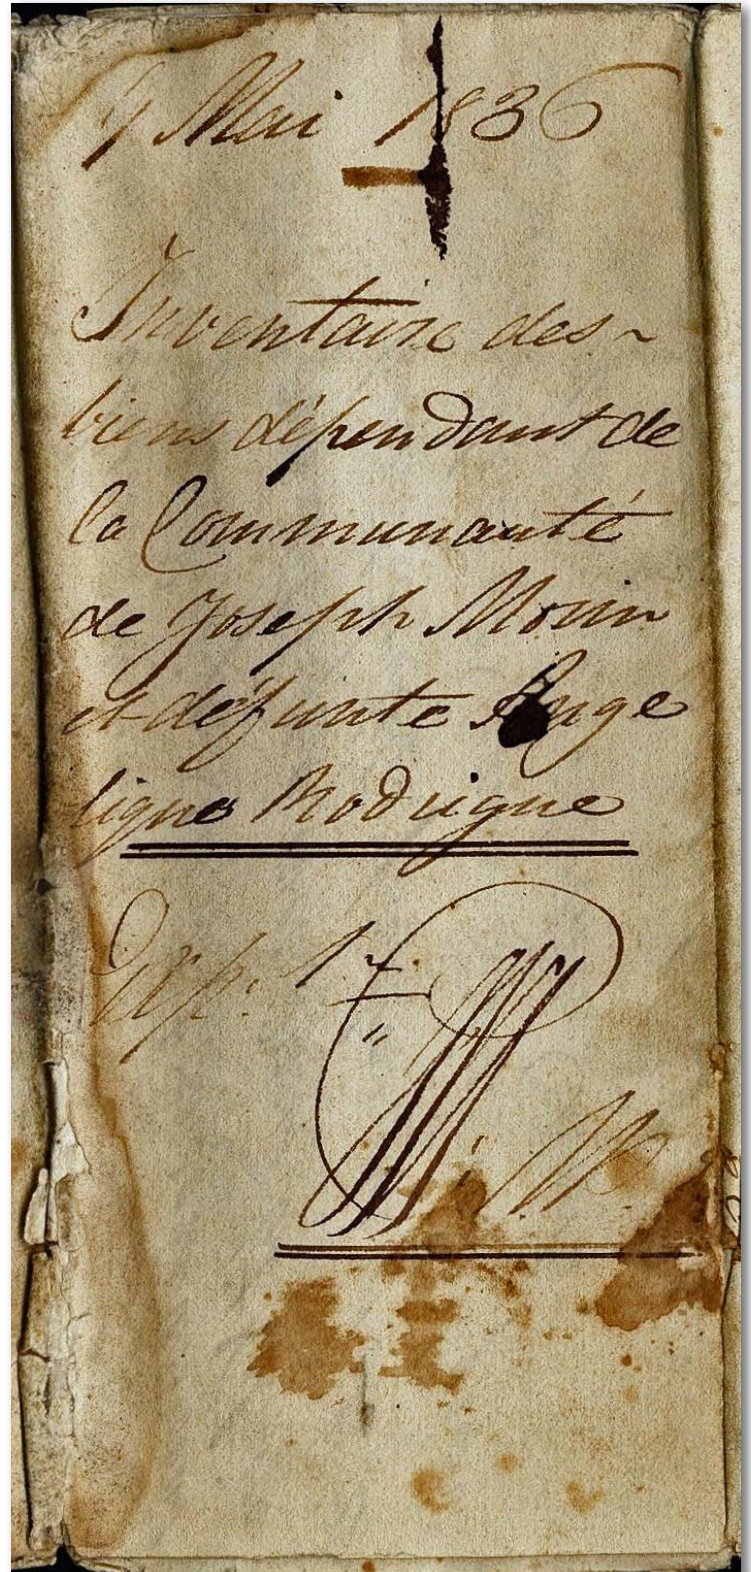 4 Mai 1836
Inventaire des
biens dépendant de
la Communauté
de Joseph Morin
et défunte Ange
lique Rodrigue
Exp: 1